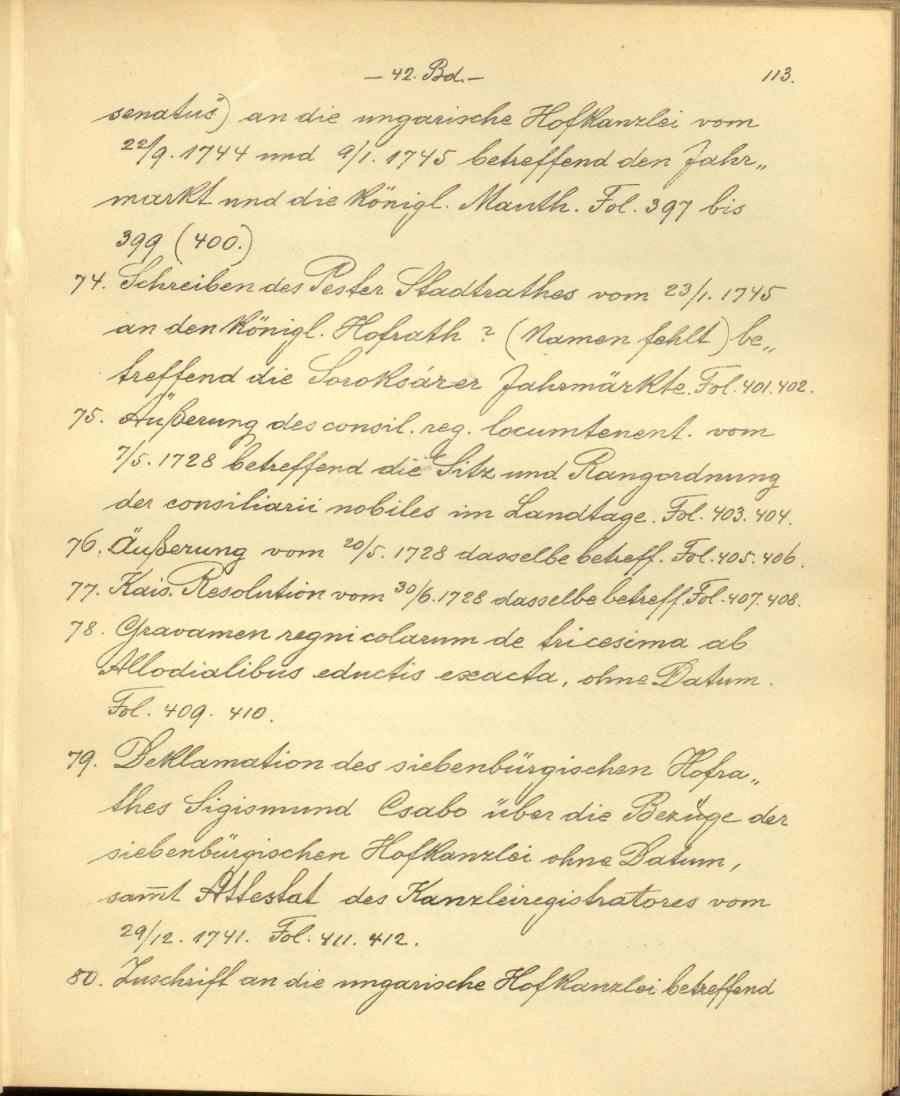 – 42. Bd. – 113.
senatus") an die ungarische Hofkanzlei vom
22/9. 1744 und 9/1. 1745 betreffend den Jahr„
markt und die königl. Mauth. Fol. 397 bis
399 (400.)
74. Schreiben des Pester Stadtrathes vom 23/1. 1745
an den königl. Hofrath ? (Namen fehlt) be„
treffend die Soroksárer Jahrmärkte. Fol. 401. 402.
75. Äußerung des consil. reg. locumtenent. vom
7/5. 1728 betreffend die Sitz und Rangordnung
der consiliarii nobiles im Landtage. Fol. 403. 404.
76. Äußerung vom 20/5. 1728 dasselbe betreff. Fol. 405. 406.
77. Kais. Resolution vom 30/6. 1728 dasselbe betreff. Fol. 407. 408.
78. Gravamen regni colarum de tricesima ab
Allodialibus eductis exacta, ohne Datum.
Fol. 409. 410.
79. Deklamation des siebenbürgischen Hofra„
thes Sigismund Csabo über die Bezüge der
siebenbürgischen Hofkanzlei ohne Datum,
sam̄t Attestat des Kanzleiregistratores vom
29/12. 1741. Fol. 411. 412.
80. Zuschrift an die ungarische Hofkanzlei betreffend